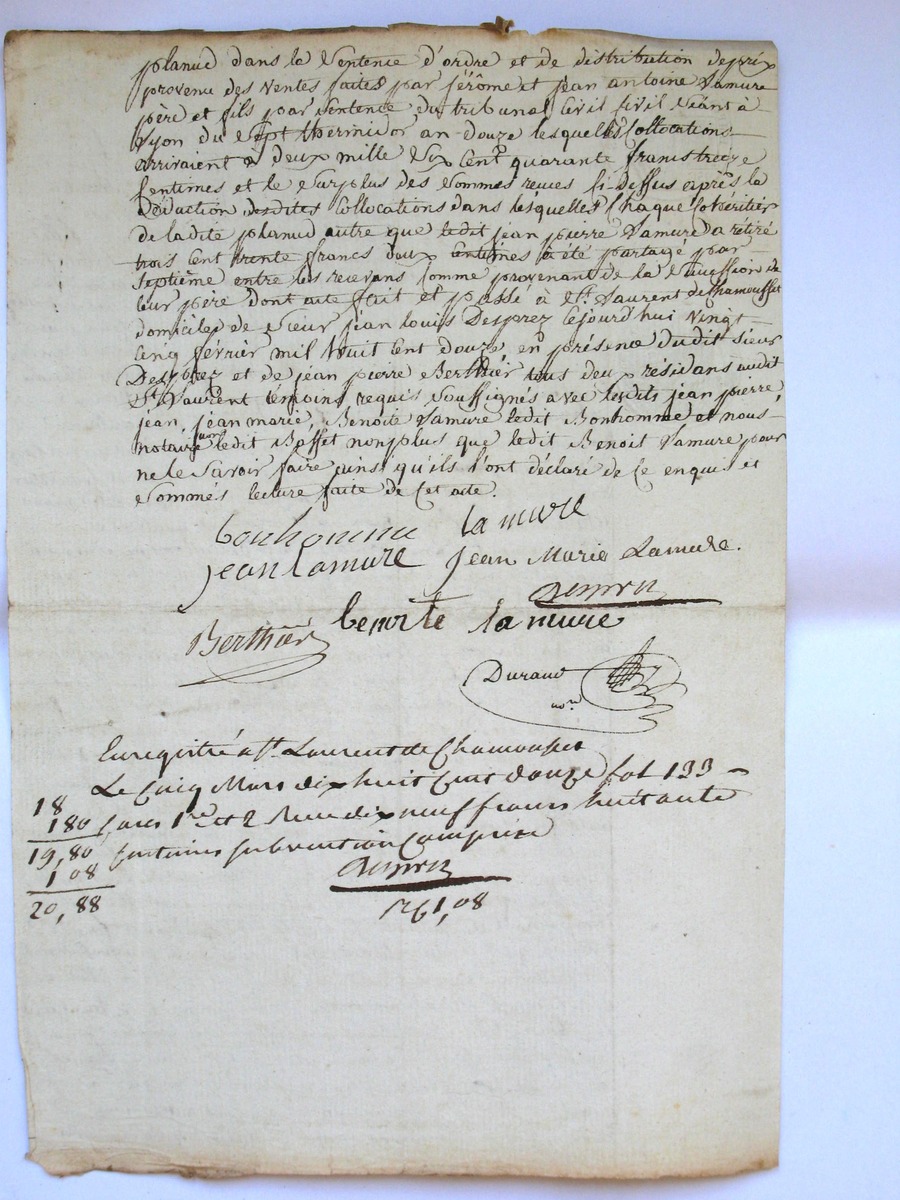 planud dans la Sentence d'ordre et de distribution de prix
provenu des ventes faites par jérôme et jean antoine Lamure
père et fils par Sentence du tribunal Civil Civil Séant à
Lyon du Sept thermidor an douze lesquelles Collocations
arrivaient à deux mille Six Cent quarante francs treize
Centimes et le Surplus des Sommes reçues Ci-dessus après la
Déduction desdites Collocations dans lesquelles Chaque Cohéritier
de la dite planud autre que ledit jean pierre Lamure a rétiré
trois Cent trente francs deux Centimes a été partagé par
Septième entre les recevans Comme provenant de la Succession de
leur père dont acte fait et passé à St. Laurent de Chamousset
domicile de Sieur jean louis Desprez Cejourd'hui vingt
Cinq février mil huit Cent douze en présence dudit Sieur
Desprez et de jean pierre Berthier tous deux résidans audit
St. Laurent témoins requis Soussignés avec lesdits jean pierre,
jean, jean marie, Benoite Lamure ledit Bonhomme et nous
notaire ledit Basset non plus que ledit Benoit Lamure pour
ne le Savoir faire ainsi qu'ils l'ont déclaré de Ce enquis et
Sommés lecture faite de Cet acte.
bonhomme la mure
jean lamure Jean Marie Lamure.
Desprez
Berthier benoite la mure
Durand
nore
Enregistré a St. Laurent de Chamousset
Le Cinq Mars dix huit Cent douze fol 133
18
180 Cases 1re et 2 Reçu dix neuf francs huitante
19,80 Centimes subvention Comprise
1 08 Desprez
20,88 1761,08